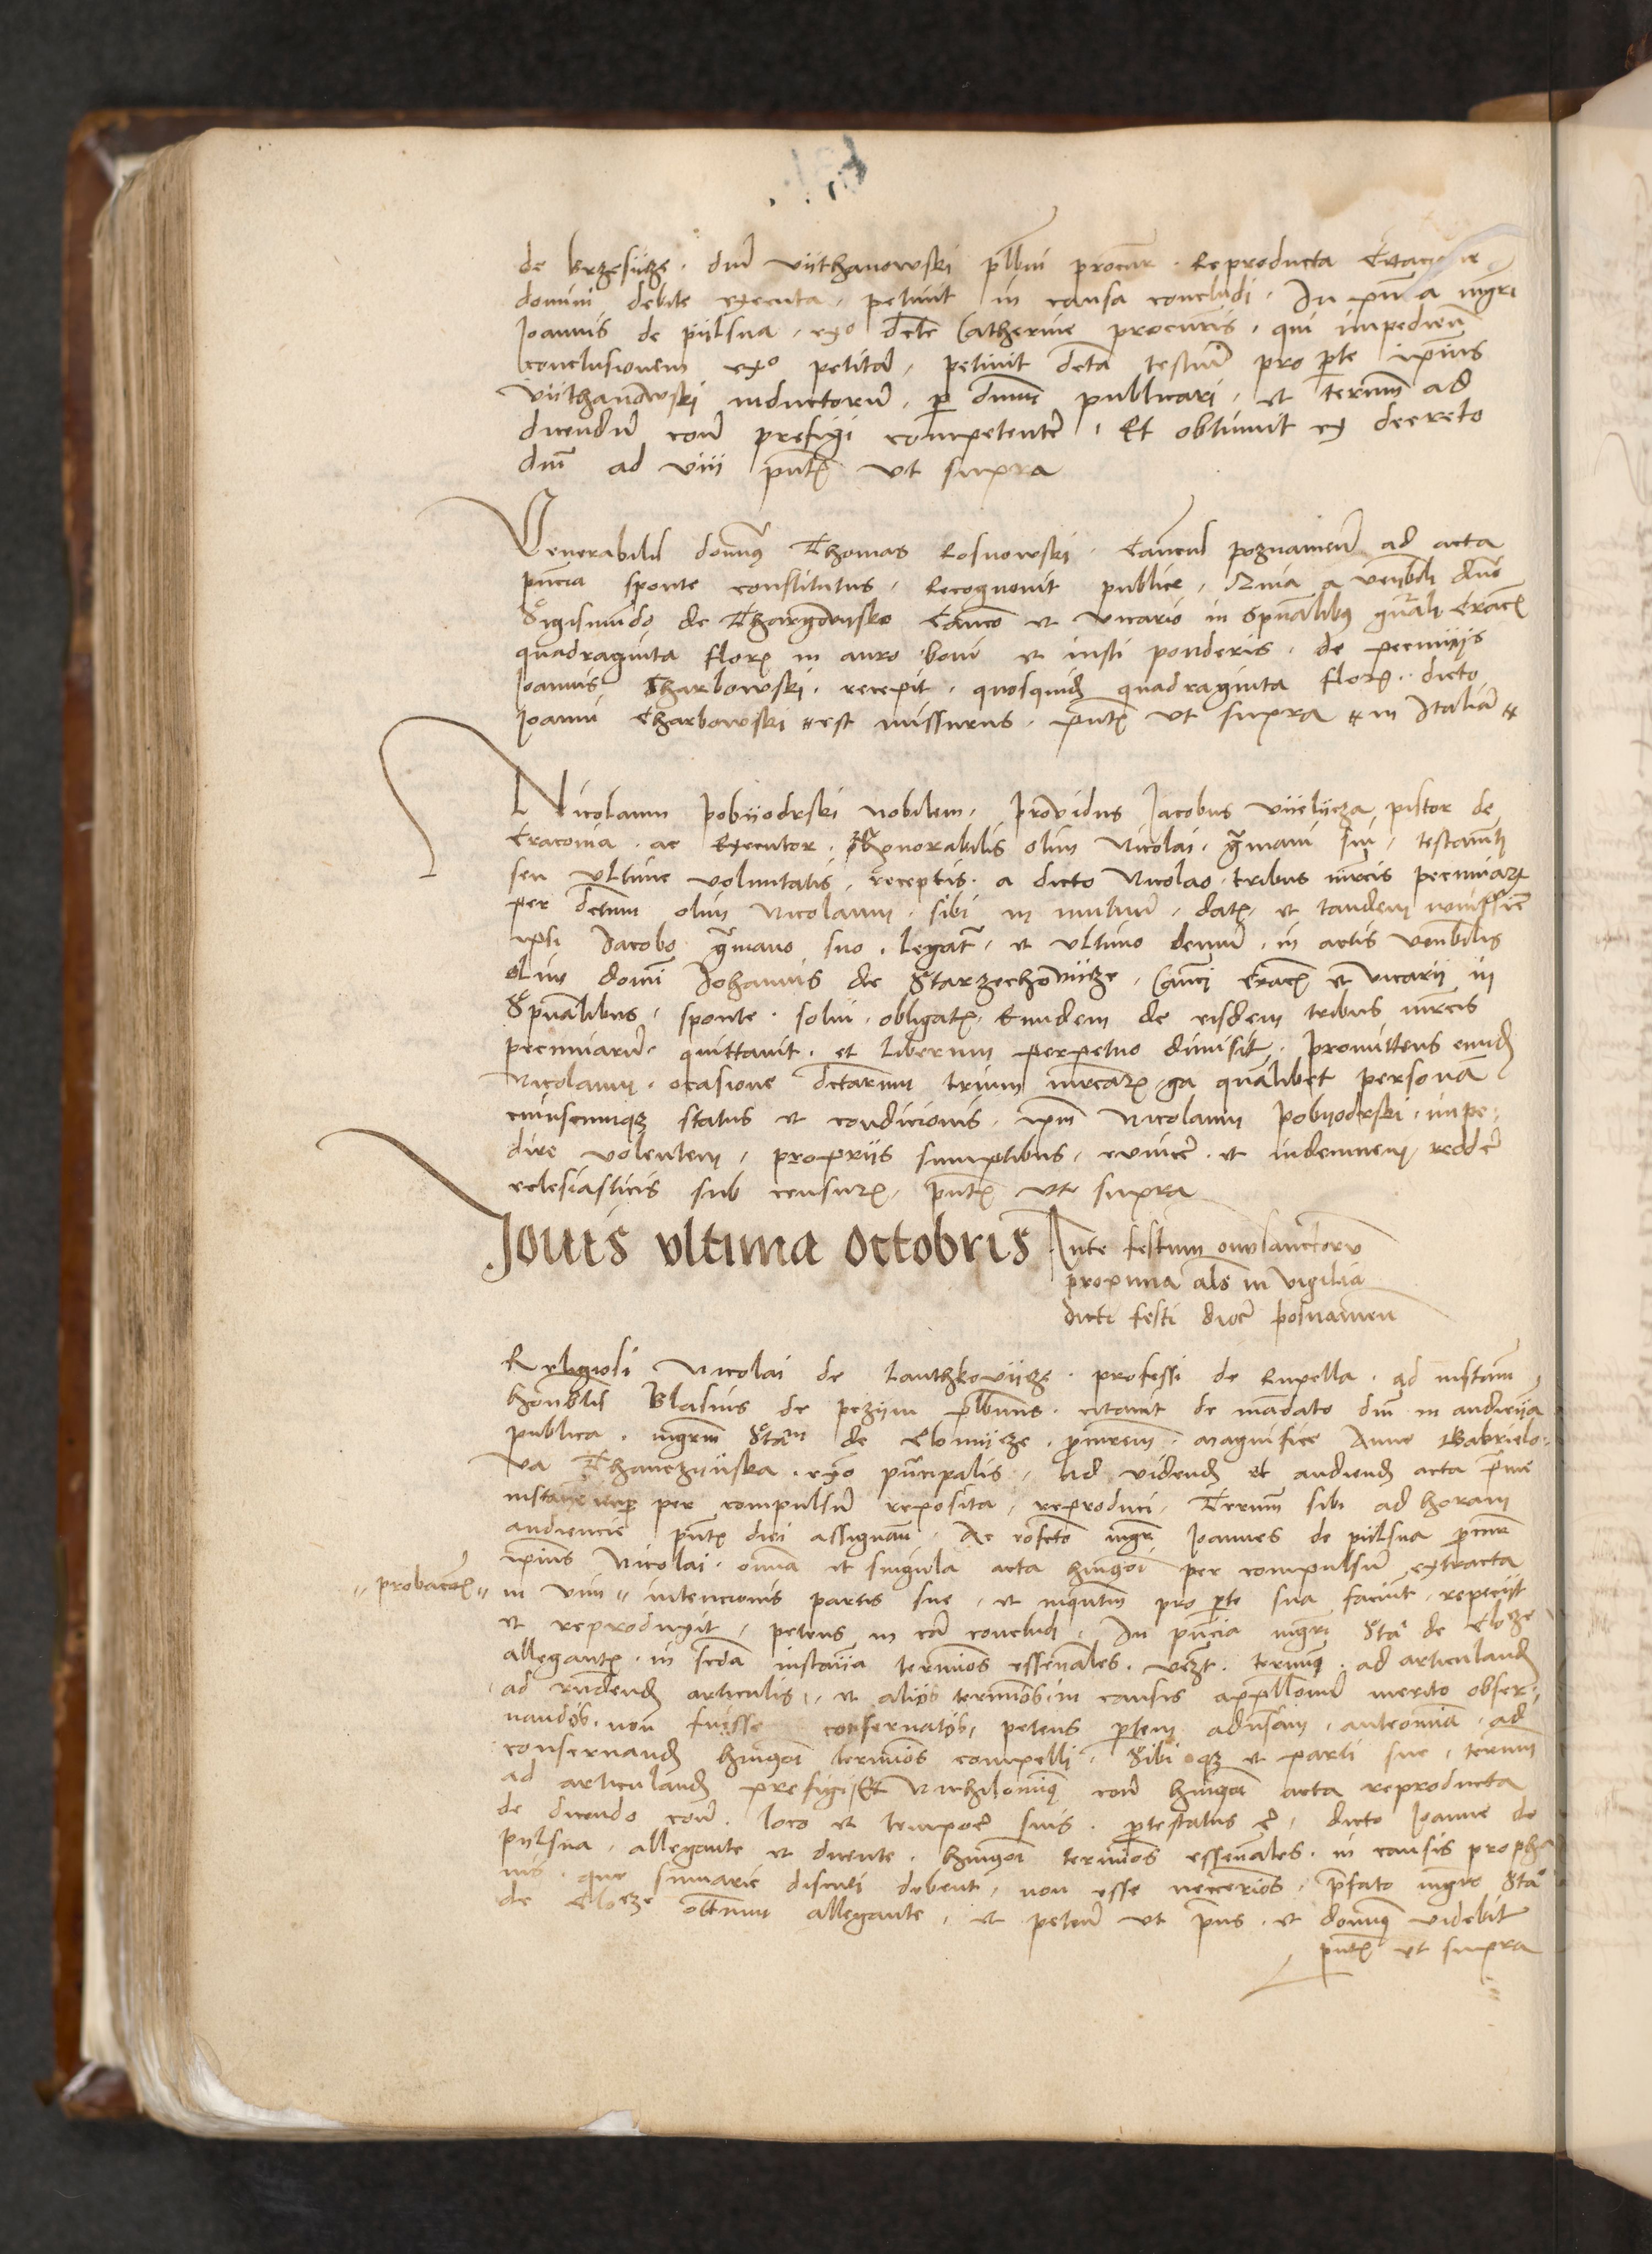 de brzesücze. dni vüthanowski plbni procur. Reproducta Citacione
domini debite exenta, petiuit in causa concludi. In pn̄a mgri
Joannis de pülsna, exo dcte Catherine procuris, qui impedien
conclusionem exo petitā, petiuit dcta testiū pro pte ipius
vüthanowski inductorū, p dnm publicari, et termn ad
dicendū conͬ prefigi competentē, Et obtinuit ex decreto
dni ad viii pntꝫ vt supra
Venerabilis domnꝰ Thomas Rosnowski. Canćus poznanień ad acta
pn̄cia sponte constitutus, Recognouit publice, Quia a venbili dno
Sigismūdo de Thargowysko Canco et vicario in Spūalibꝰ gn̄ali Cracꝫ
quadraginta florꝫ in auro boni et iusti ponderis, de pecunijs
Joannis Charbowski, recepit, quosquidꝫ quadraginta florꝫ. dicto
Joanni Charbowski est missurus. pntꝫ vt supra in Italiā
Nicolaum pobyodrski nobilem, prouidus Jacobus vüelycza pistor de
Cracouia. ac Executor. honorabilis olim Nicolai. gmani sui, testamti
seu vltime voluntatis, receptis. a dicto Nicolao. tribus mrcis pecuniarꝫ
per dctum olim Nicolaum, sibi in mutuū, datꝫ, et tandem
ipsi Jacobo gmano suo. legatꝫ, et vltimo demū, in actis venbilis
olim domi Johannis de Starzechowücze, Canci Cracꝫ et vicarii in
Spūalibus, sponte. solui. obligatꝫ, Eundem de eisdem tribus mrcis
pecuniarū. quittauit. et liberum perpetuo dimisit. promittens eundꝫ
Nicolaum. ocasione dctarum trium mrcarꝫ ga quālibet personā
cuiuscunqꝫ status et condicionis. ipm Nicolaum pobyodrski. impe-
dire volentem, proprijs sumptibus, euincē. et indemnem reddē
eclesiasticis sub censurꝫ. pntꝫ vt supra
Jouis vltima octobris Ante festum omsanctorū
proxima als in vigilia
dicti festi dioc posnanień
Religiosi Nicolai de lanthkovücze. professi de Rupella. ad instam
honblis Blasius de pezym plbnus. citauit de mādato dni in audiēcia
publica, mgrm Sta͞m de Clomücze. pcurem. magnifice Anne Gabrielo-
wa Thanczynska. exo pncipalis, Ad videndꝫ et audiendꝫ acta pme
instancie per compulsū reposita, reproduci. Termn sibi ad horam
audiencie pntꝫ diei assignan. Ac mgr Joannes de pilsna pcur
ipius Nicolai. omia et singula acta hmōi per compulsū extracta
"probacōꝫ" in vim " intencionis partis sue, et inqntm pro pte sua faciūt, repetiit
et reproduxit, petens in cā concludi. In pn̄cia mgri Sta de Clocze
allegantꝫ. in scda instancia terminos essenales. vezt. terminꝫ. ad articulandꝫ
ad rn̄dendꝫ articulis, et aliis terminos in causis appllonū merito obser-
uandos. non fuisse conseruatos, petens ptem aduSam, anteomnia. ad
conseruandꝫ hmōi terminos compelli. Sibi qꝫ et parti sue, termn
ad articulandꝫ prefigi Et Nichilominꝰ conͬ hmōi acta reproducta
de dicendo conͬ. loco et tempore suis. ptestatus ē, dicto Joanne de
pylsna, allegante et dicente. hmōi terminos essenales. in causis propha
nis. que sumarie discuti debent, non esse necerios. pfato mgro Sta
de Clocze allegante, et petēn vt pus. et domnꝰ videbit
pntꝫ vt supra